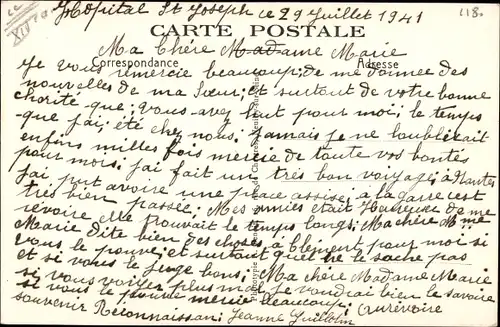 Hôpital St Joseph ce 29 Juillet 1941
118.
CARTE POSTALE
Ma Chère Madame Marie
Correspondance
Adresse
Je vous remercie beaucoup; de me donnee des
nouvelles de ma Sœur; et surtout de votre bonne
chorité que; vous avez put pour moi; le temps
que j'ai; été chez nous. Jamais je ne loublierait
enfins milles fois mercie de toute vos bontés
pour mois. j'ai fait un très bon voyage; à Nantes
j'ai put avoire une place assise; a la gare c'est
très bien passée; Mes amies était Heureuse de me
revoire elle trouvait le temps long; Ma chère Mme
Marie dite bien des choses a Clément pour moi si
vous le pouvé; et surtout que ne le sache pas
et si vous le juge bons; Ma chère Madame Marie
si vous voiyer plus ma je voudrai bien le savoire
si vous le pouvé mercie beaucoup; Aurévoire
souvenir Reconnaissan; Jeanne Guillotin